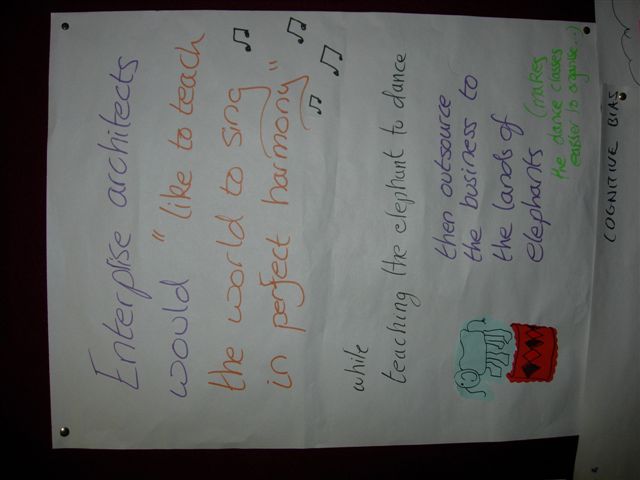 Enterprise architects
would "like to teach
the world to sing
in perfect harmony"
while
teaching the elephant to dance
then outsource
the business to
the lands of
elephants
(makes
the dance classes
easier to organise...)
COGNITIVE BIAS